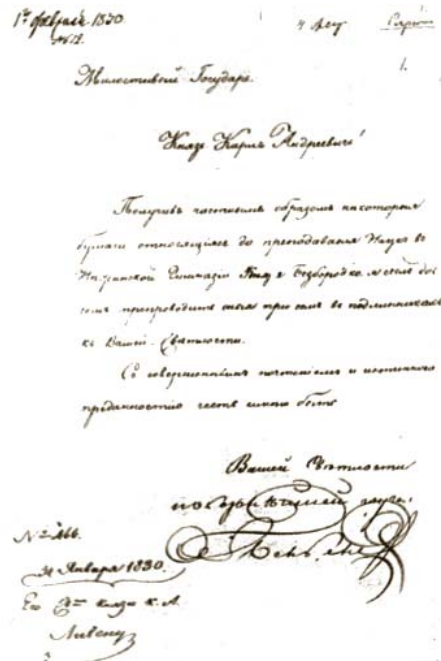 1го февраля 1830.
4 дек
1.
Милостивый Государь
Князь Карлъ Андреевичь!
Получивъ частнымъ образомъ некоторыя
бумаги относящіяся до преподаванія Наукъ въ
Нежинской Гимназіи Князя Безбородко, честь
препроводить оныя при семъ въ подлинникахъ
къ Вашей Светлости.
Съ совершеннымъ почтеніемъ и истинною
преданностію честь имею быть
Вашей Светлости
покорнейшій слуга
№ 166.
31 Января 1830.
Его Св. князю К. А.
Ливену